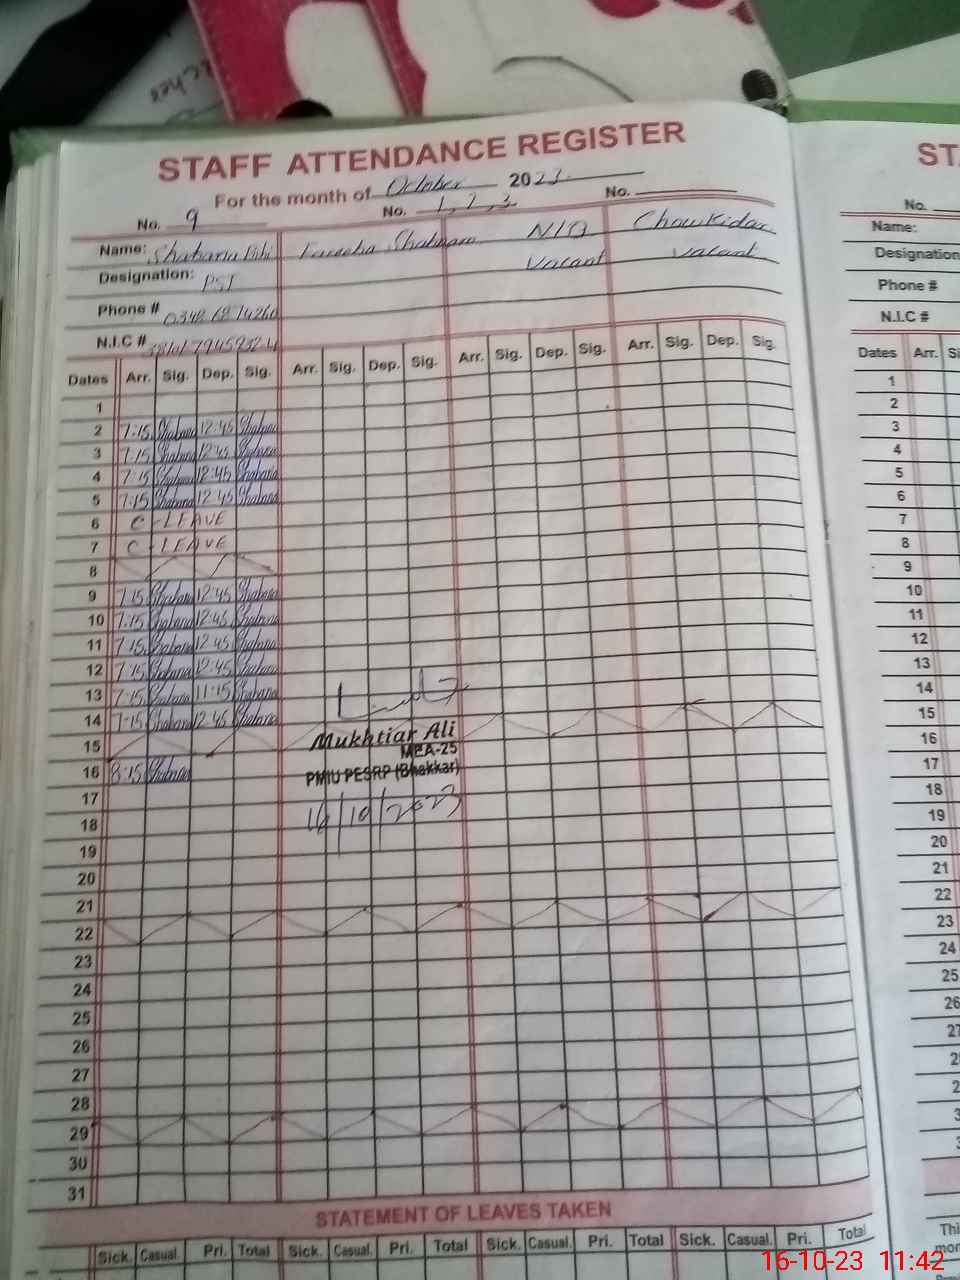 STAFF ATTENDANCE REGISTER
For the month of October 2023
No. 9 No. 1, 2, 3 No.
Name: Shabana Bibi Fareeha Shabnam N/Q Chowkidar
Designation: PST Vacant Vacant
Phone #
N.I.C #
Dates Arr. Sig. Dep. Sig. Arr. Sig. Dep. Sig. Arr. Sig. Dep. Sig. Arr. Sig. Dep. Sig.
1
2 7:15 Shabana 12:45 Shabana
3 7:15 Shabana 12:45 Shabana
4 7:15 Shabana 12:45 Shabana
5 7:15 Shabana 12:45 Shabana
6 C-LEAVE
7 C-LEAVE
8
9 7:15 Shabana 12:45 Shabana
10 7:15 Shabana 12:45 Shabana
11 7:15 Shabana 12:45 Shabana
12 7:15 Shabana 12:45 Shabana
13 7:15 Shabana 11:15 Shabana
14 7:15 Shabana 12:45 Shabana
15
16 8:15 Shabana
17
18
19
20
21
22
23
24
25
26
27
28
29
30
31
Mukhtiar Ali
MEA-25
PMIU PESRP (Bhakkar)
16/10/2023
STATEMENT OF LEAVES TAKEN
Sick. Casual. Pri. Total Sick. Casual. Pri. Total Sick. Casual. Pri. Total Sick. Casual. Pri. Total
ST
No.
Name:
Designation
Phone #
N.I.C #
Dates Arr. Si
1
2
3
4
5
6
7
8
9
10
11
12
13
14
15
16
17
18
19
20
21
22
23
24
25
26
27
Thi
mon
16-10-23 11:42